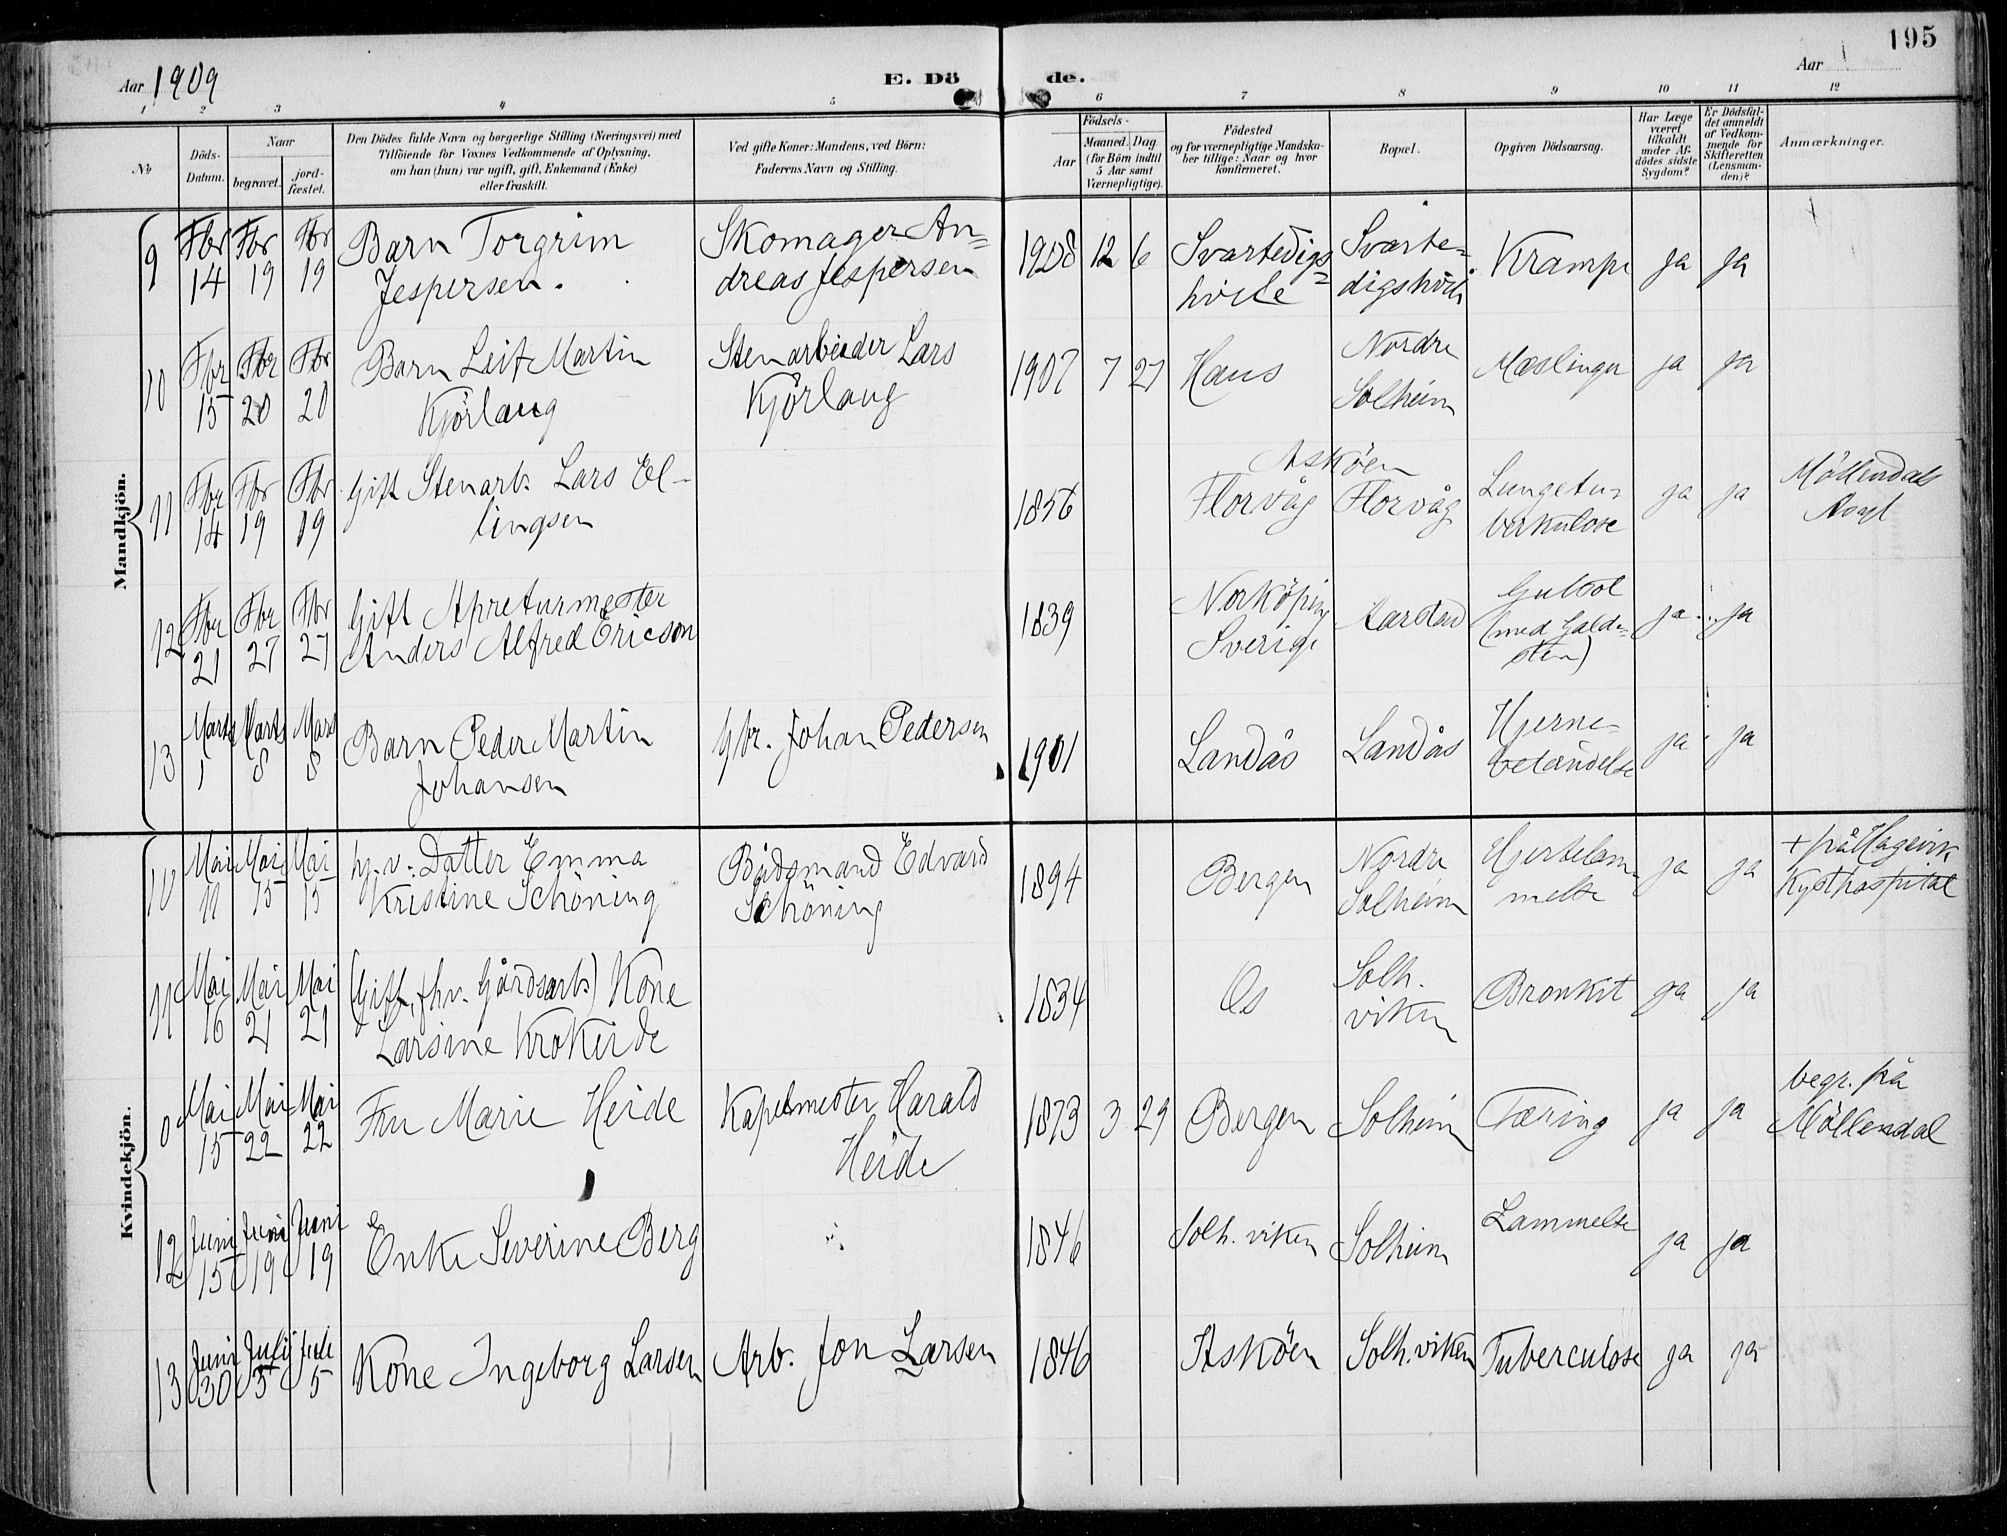 Aar 1909
E. Döde.
Aar
195
1 2 3 4 5 6 7 8 9 10 11 12
No
Döds-Datum.
Naar
begravet.
jord-fæstet.
Den Dödes fulde Navn og borgerlige Stilling (Næringsvei) med
Tilföiende for Voxnes Vedkommende af Oplysning,
om han (hun) var ugift, gift, Enkemand (Enke)
eller fraskilt.
Ved gifte Koner: Mandens, ved Börn:
Faderens Navn og Stilling.
Födsels-
Aar
Maaned. Dag.
(for Börn indtil
5 Aar samt
Værnepligtige).
Födested
og for værnepligtige Mandska-
ber tillige: Naar og hvor
konfirmeret.
Bopæl.
Opgiven Dödsaarsag.
Har Læge
været
tilkaldt
under Af-
dödes sidste
Sygdom?
Er Dödsfal-
det anmeldt
af Vedkom-
mende for
Skifteretten
(Lensman-
den)?
Anmærkninger.
Mandkjön.
9 Fbr 14 Fbr 19 Fbr 19 Barn Torgrim Jespersen. Skomager Andreas Jespersen 1908 12 6 Svartedigshvile Svartedigshvile Krampe ja ja
10 Fbr 15 Fbr 20 Fbr 20 Barn Leif Martin Kjörlaug Stenarbeider Lars Kjörlaug 1907 7 27 Haus Nordre Solheim Mæslinger ja ja
11 Fbr 14 Fbr 19 Fbr 19 Gift Stenarb. Lars Ellingsen 1856 Askøen Florvåg Florvåg Lungetuberkulose ja ja Möllendals
12 Fbr 21 Fbr 27 Fbr 27 Gift Apreturmester Anders Alfred Ericson 1839 Norköping Sverige Aarstad Gulsot (med Galdesten) ja ja
13 Marts 1 Marts 8 Mars 8 Barn Peder Martin Johansen Gbr. Johan Pedersen 1901 Landås Landås Hjernebetændelse ja ja
Kvindekjön.
10 Mai 11 Mai 15 Mai 15 hj. v. Datter Emma Kristine Schöning Bådsmand Edvard Schöning 1894 Bergen Nordre Solheim Hjertelammelse ja ja + på Hagevik Kysthospital
11 Mai 16 Mai 21 Mai 21 (Gift, fhv. Gårdsarb.) Kone Larsine Krokeide 1834 Os Solh. viken Bronkit ja ja
0 Mai 15 Mai 22 Mai 22 Fru Marie Heide Kapelmester Harald Heide 1873 3 29 Bergen Solheim Tæring ja ja begr. på Möllendal
12 Juni 15 Juni 19 Juni 19 Enke Severine Berg 1846 Solh. viken Solheim Lammelse ja ja
13 Juni 30 Juli 5 Juli 5 Kone Ingeborg Larsen Arb. Jon Larsen 1846 Askøen Solh. viken Tuberculose ja ja